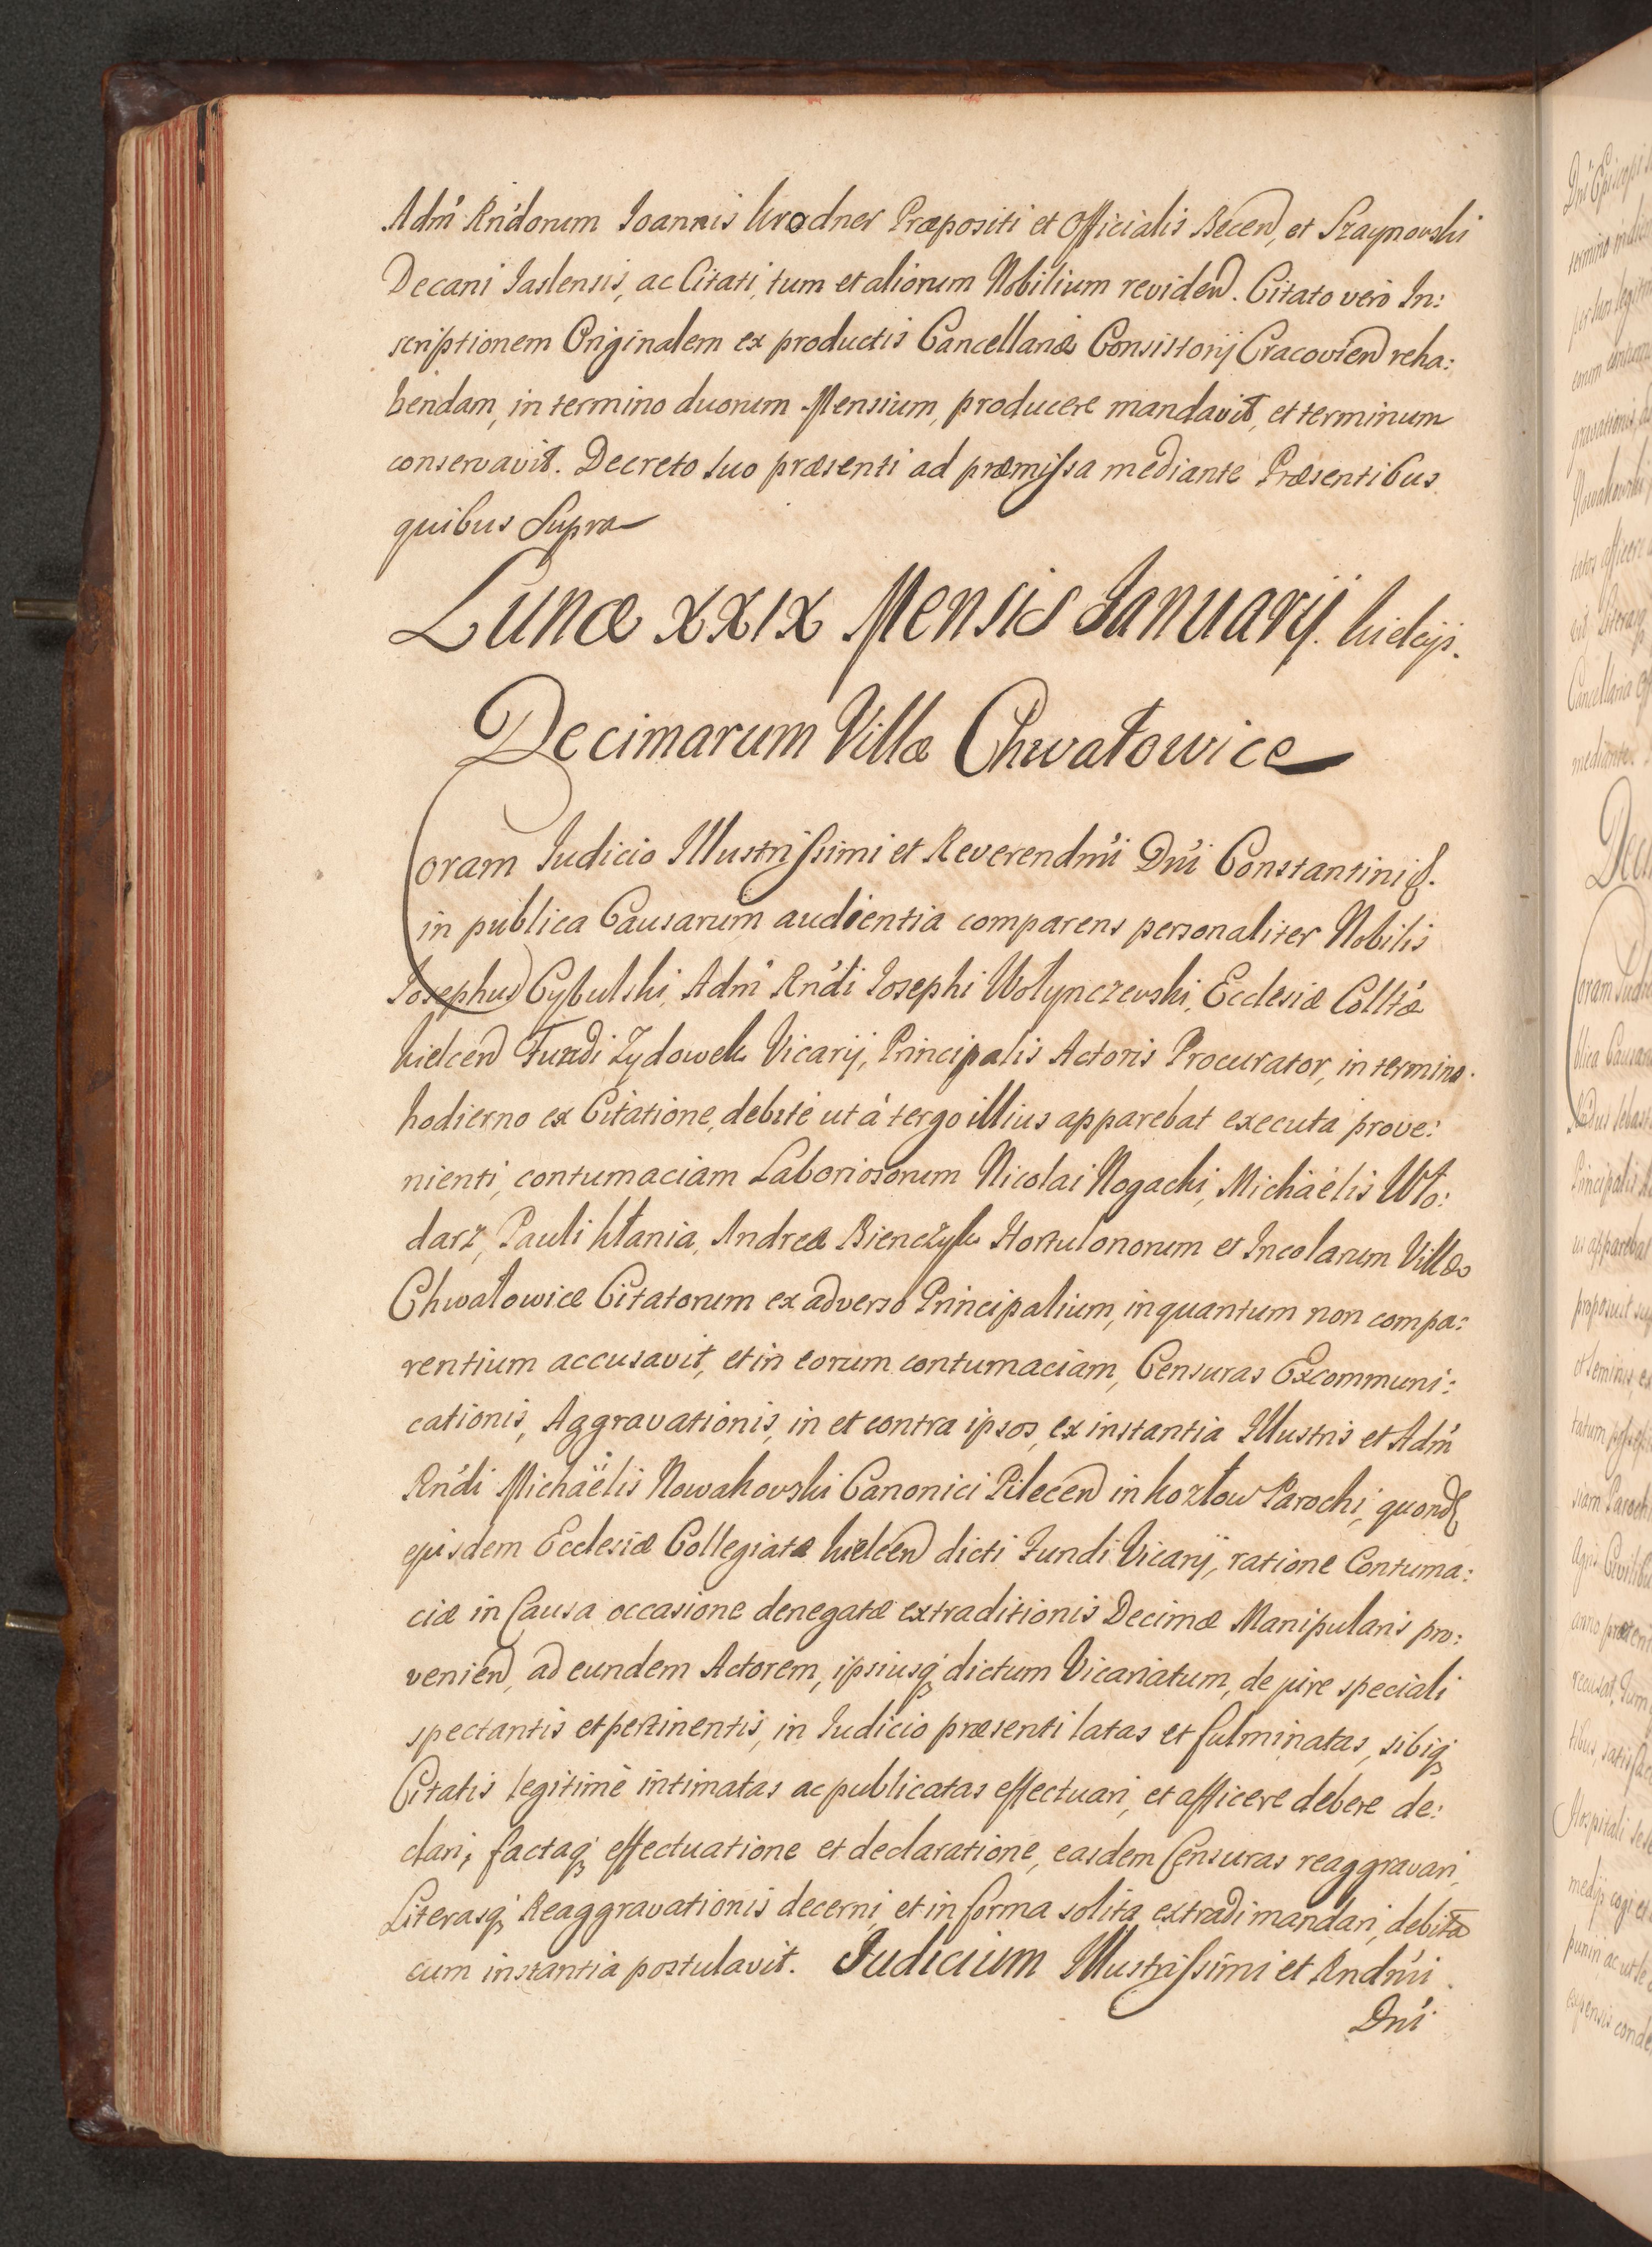 Adm̃ Rńdorum Joannis Krodner Præpositi et Officialis Becen, et Szaynovski
Decani Jaslensis, ac Citati, tum et aliorum Nobilium reviden. Citato vero In:
scriptionem Originalem ex productis Cancellariæ Consistorij Cracovien reha:
bendam, in termino duorum Mensium, producere mandavit, et terminum
conservavit. Decreto suo præsenti ad præmissa mediante Præsentibus
quibus Supra
Lunæ XXIX Mensis Januarij. Kielcijs.
Decimarum Villæ Chwałowice
Coram Judicio Illustrissimi et Reverendm̃i Dńi Constantini &.
in publica Causarum audientia comparens personaliter Nobilis
Josephus Cybulski, Adm̃ Rńdi Josephi Wolynczevski, Ecclesiæ Colltæ
Kielcen Fundi Zydowek Vicarij, Principalis Actoris Procurator, in termino
hodierno ex Citatione, debite ut á tergo illius apparebat executa prove:
nienti, contumaciam Laboriosorum Nicolai Nogacki, Michaëlis Wło:
darz, Pauli Kłania, Andreæ Bienczyk Hortulonorum et Incolarum Villæ
Chwałowice Citatorum ex adverso Principalium, inquantum non compa:
rentium accusavit, et in eorum contumaciam, Censuras Excommuni:
cationis, Aggravationis, in et contra ipsos, ex instantia Illustris et Adm̃
Rńdi Michaëlis Nowakovski Canonici Pilecen in Kozłow Parochi, quond
ejusdem Ecclesiæ Collegiatæ Kielcen dicti Fundi Vicarij, ratione Contuma:
ciæ in Causa occasione denegatæ extraditionis Decimæ Manipularis pro:
venien, ad eundem Actorem, ipsiusq; dictum Vicariatum, de jure speciali
spectantis et pertinentis, in Judicio præsenti latas et fulminatas, sibiq;
Citatis legitimè intimatas ac publicatas effectuari, et afficere debere de:
clari, factaq; effectuatione et declaratione, easdem Censuras reaggravari,
Literasq; Reaggravationis decerni, et in forma solita extradi mandari, debita
cum instantia postulavit. Judicium Illustrissimi et Rndm̃i
Dńi